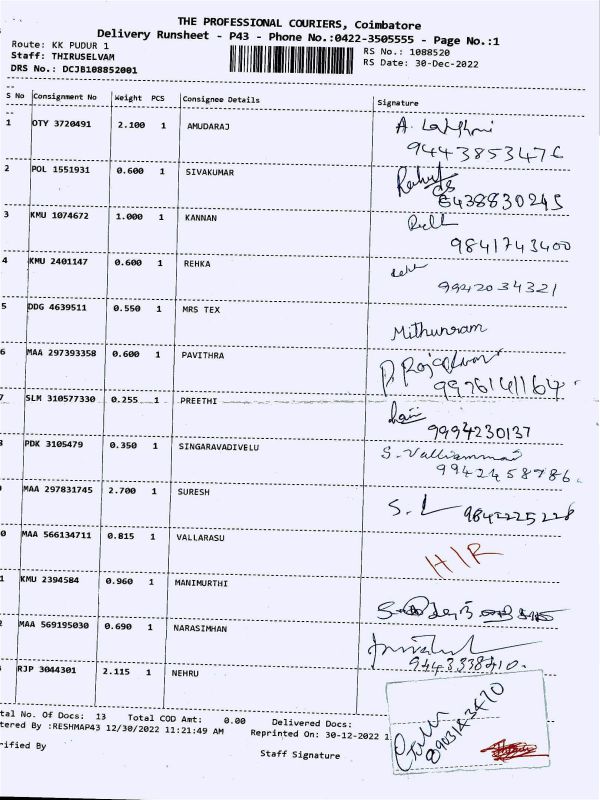 THE PROFESSIONAL COURIERS, Coimbatore
Delivery Runsheet - P43 - Phone No.:0422-3505555 - Page No.:1
Route: KK PUDUR 1
RS No.: 1088520
Staff: THIRUSELVAM
RS Date: 30-Dec-2022
DRS No.: DCJB108852001
S No Consignment No Weight PCS Consignee Details Signature
1 OTY 3720491 2.100 1 AMUDARAJ A. Lakshmi
9443853476
2 POL 1551931 0.600 1 SIVAKUMAR
8438830245
3 KMU 1074672 1.000 1 KANNAN
9841743400
4 KMU 2401147 0.600 1 REHKA
9942034321
5 DDG 4639511 0.550 1 MRS TEX
Mithunram
6 MAA 297393358 0.600 1 PAVITHRA
9976141164
7 SLM 310577330 0.255 1 PREETHI
9994230137
PDK 3105479 0.350 1 SINGARAVADIVELU S. Valliammai
9942458786.
MAA 297831745 2.700 1 SURESH
9842225228
0 MAA 566134711 0.815 1 VALLARASU
HIR
1 KMU 2394584 0.960 1 MANIMURTHI
2 MAA 569195030 0.690 1 NARASIMHAN
RJP 3044301 2.115 1 NEHRU
tal No. Of Docs: 13 Total COD Amt: 0.00 Delivered Docs:
tered By :RESHMAP43 12/30/2022 11:21:49 AM Reprinted On: 30-12-2022 1
rified By
Staff Signature